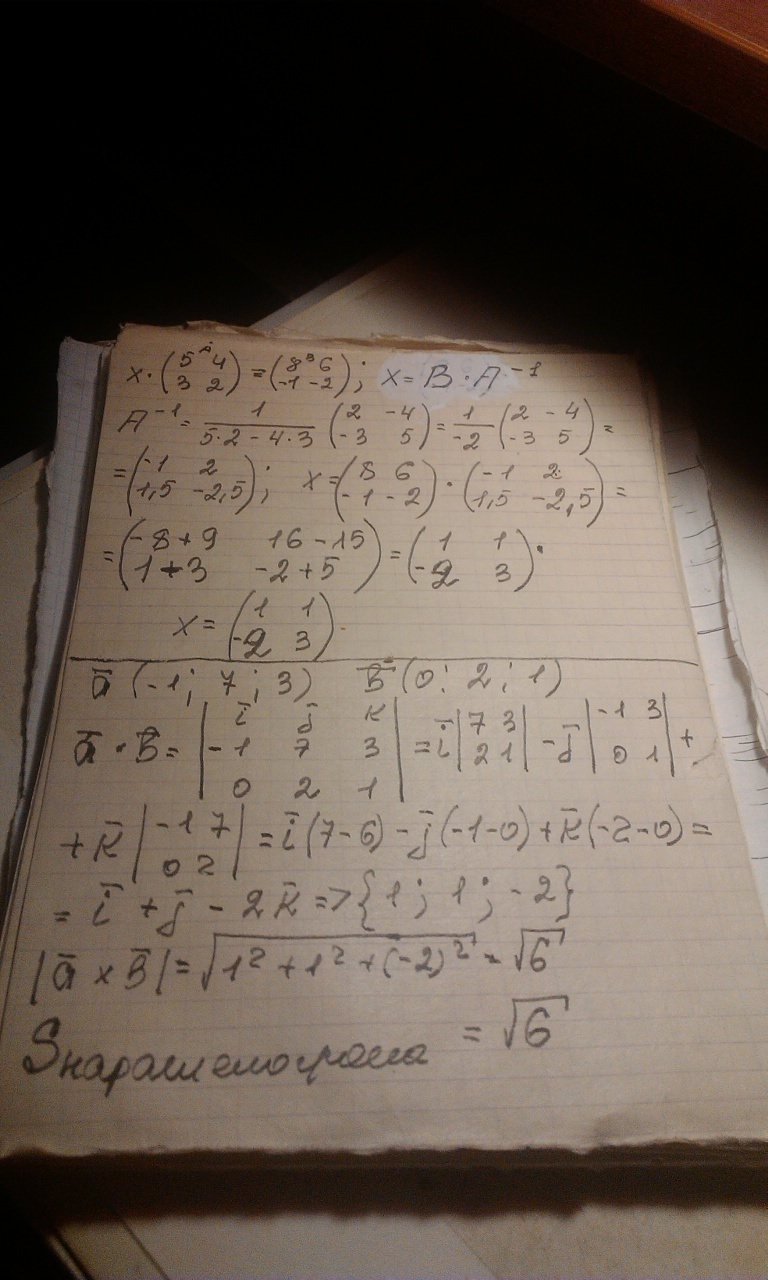 x·(5 4 3 2)^A = (8 6 -1 -2)^B; x = B·A⁻¹
A⁻¹ = 1/(5·2-4·3) (2 -4 -3 5) = 1/-2 (2 -4 -3 5) =
= (-1 2 1,5 -2,5); x = (8 6 -1 -2)·(-1 2 1,5 -2,5) =
= (-8+9 16-15 1+3 -2+5) = (1 1 -2 3).
x = (1 1 -2 3).
ā (-1; 7; 3) B̄ (0; 2; 1)
ā·B̄ = |ī j̄ к -1 7 3 0 2 1| = ī |7 3 2 1| - j̄ |-1 3 0 1| +
+ к̄ |-1 7 0 2| = ī(7-6) - j̄(-1-0) + к̄(-2-0) =
= ī + j̄ - 2к̄ => {1; 1; -2}
|ā x B̄| = √(1² + 1² + (-2)²) = √6
Sпараллелограма = √6